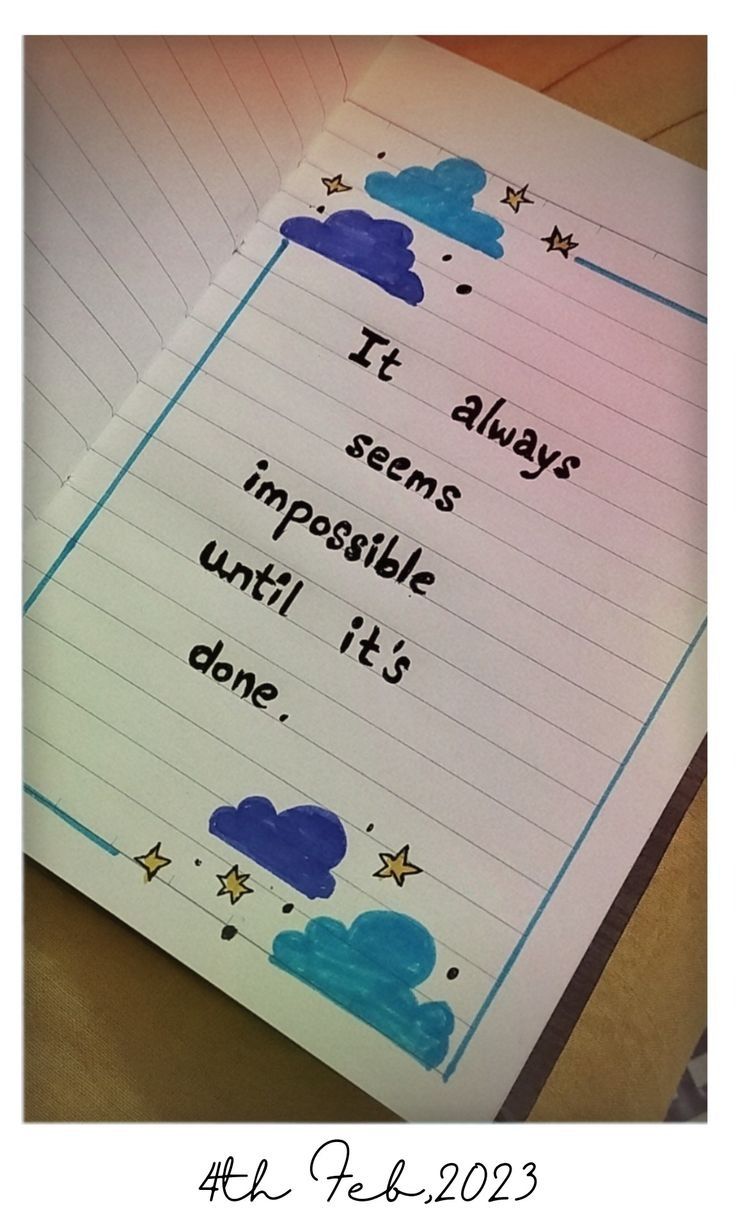 It always
seems
impossible
until it's
done.
4th Feb,2023